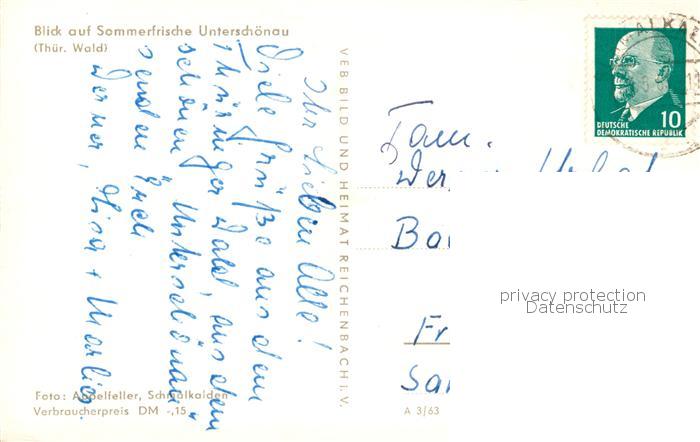 Blick auf Sommerfrische Unterschönau
(Thür. Wald)
Ihr Lieben Alle!
Viele Grüße aus dem
Thüringer Wald, aus dem
schönen "Unterschönau"
senden Euch
Werner, + Marlies.
VEB BILD UND HEIMAT REICHENBACH i. V.
Foto: Appelfeller, Schmalkalden
Verbraucherpreis DM -,15
A 3/63
10
DEUTSCHE
DEMOKRATISCHE REPUBLIK
Fam.
Wer
Ba
Fr
Sa
privacy protection
Datenschutz